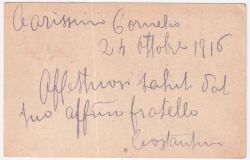 Carissimo Cornelio
24 Ottobre 1916
Affettuosi saluti dal
tuo affmo fratello
Costantino